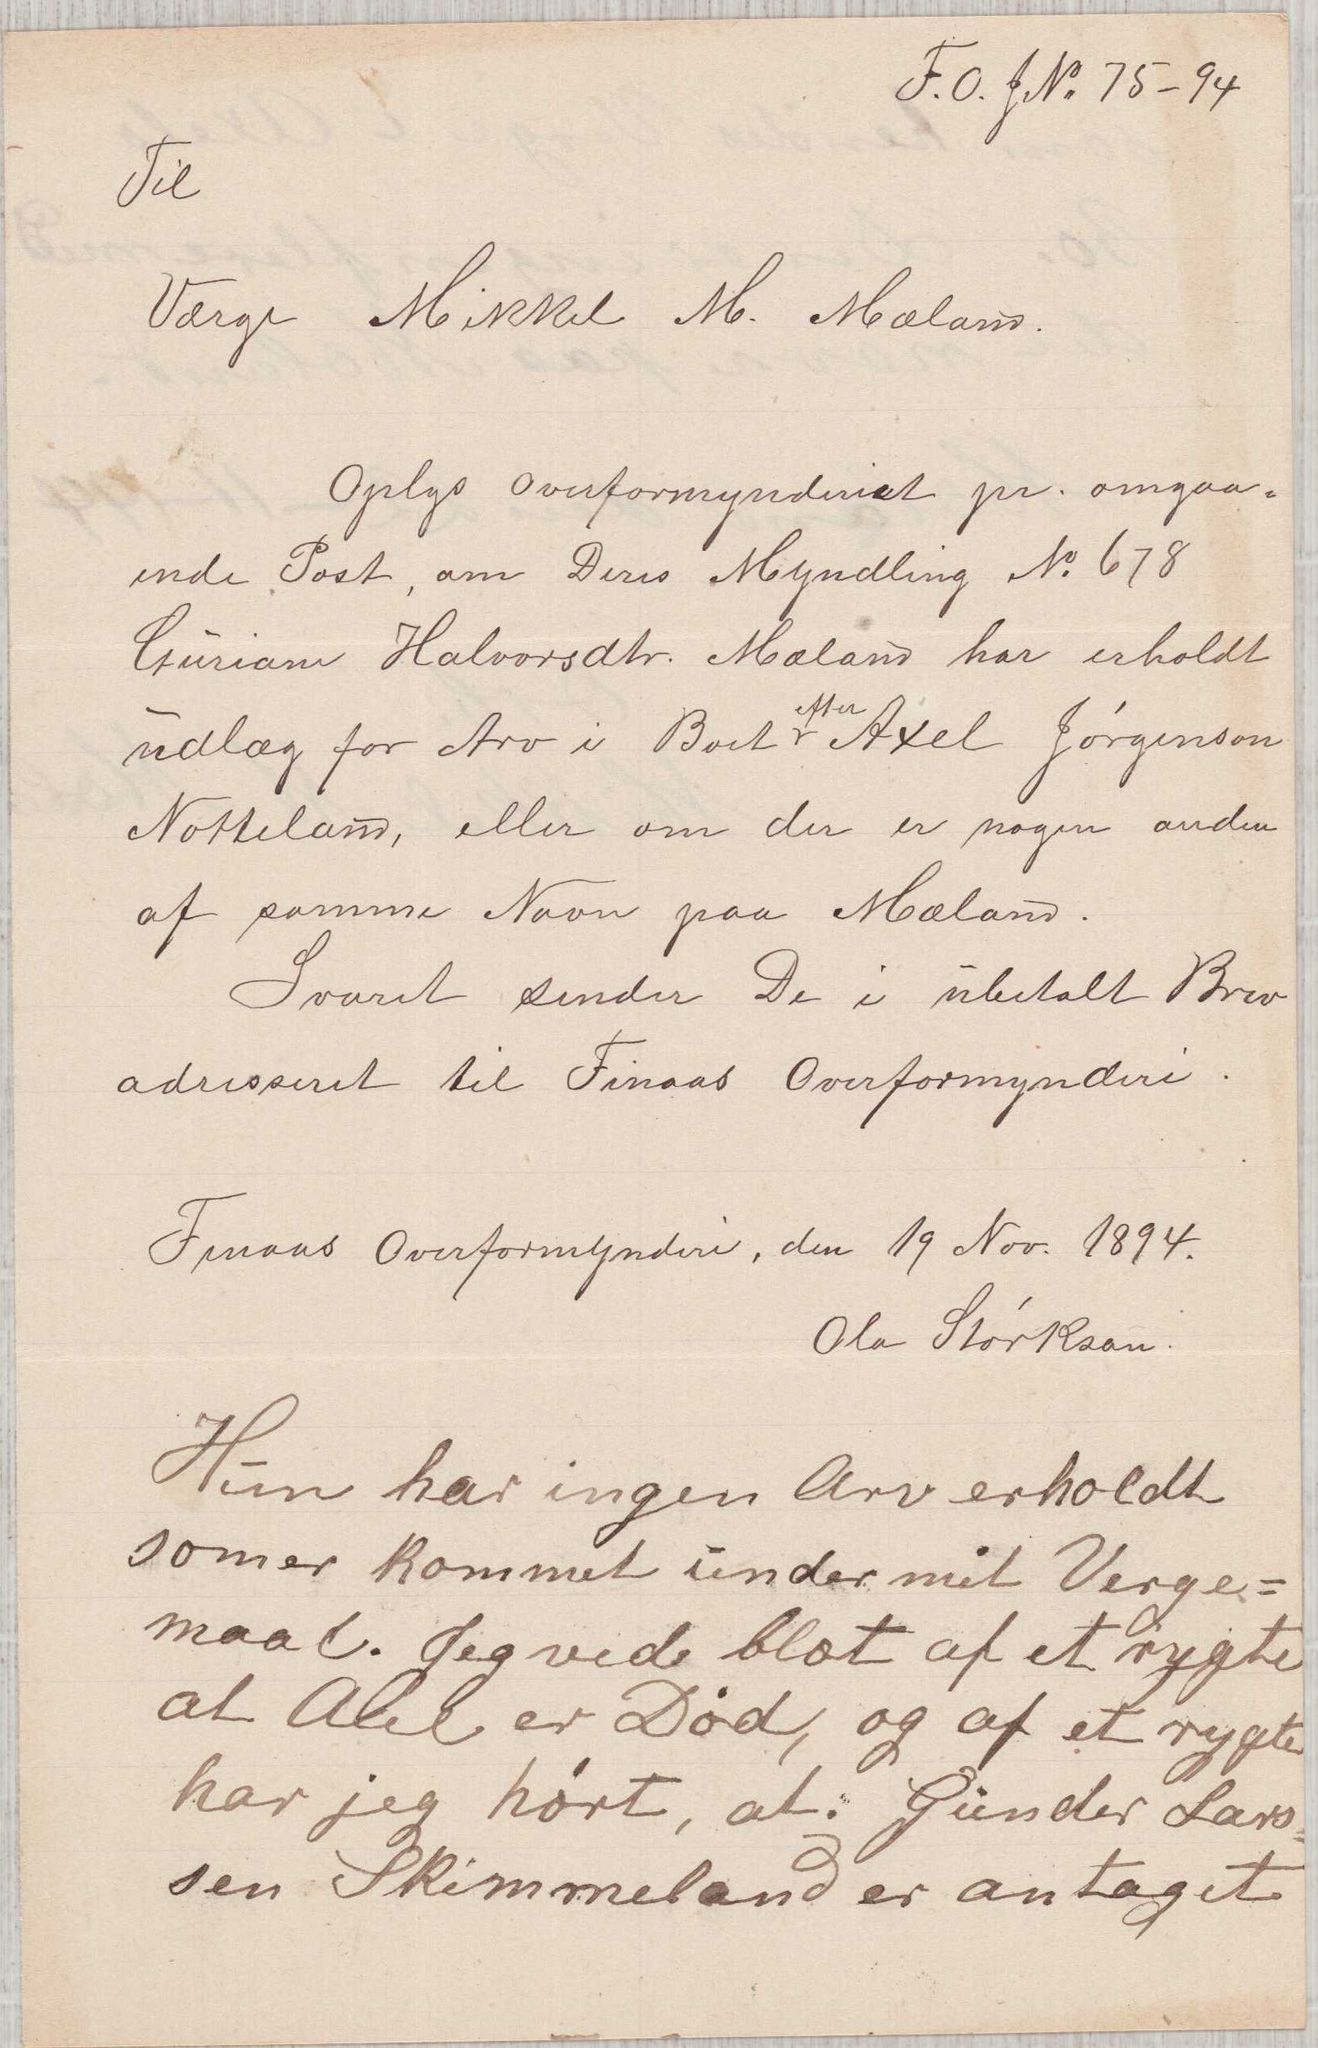 F. O. J No. 75-94
Til
Værge Mikkel M. Mæland.
Oplys Overformynderiet pr. omgaa-
ende Post, om Deres Myndling No. 678
Guriane Halvorsdtr. Mæland har erholdt
udlæg for Arv i Boet efter Axel Jørgenson
Notteland, eller om der er nogen anden
af samme Navn paa Mæland.
Svaret sender De i ubetalt Brev
adresseret til Finaas Overformynderi.
Finaas Overformynderi, den 19 Nov. 1894.
Ola Størkson.
Hun har ingen Arv erholdt
som er kommet under mit Verge=
maal. Jeg vede blot af et rygte
at Axel er Død, og af et rygte
har jeg hørt, at. Gunder Lars=
sen Skimmeland er antaget